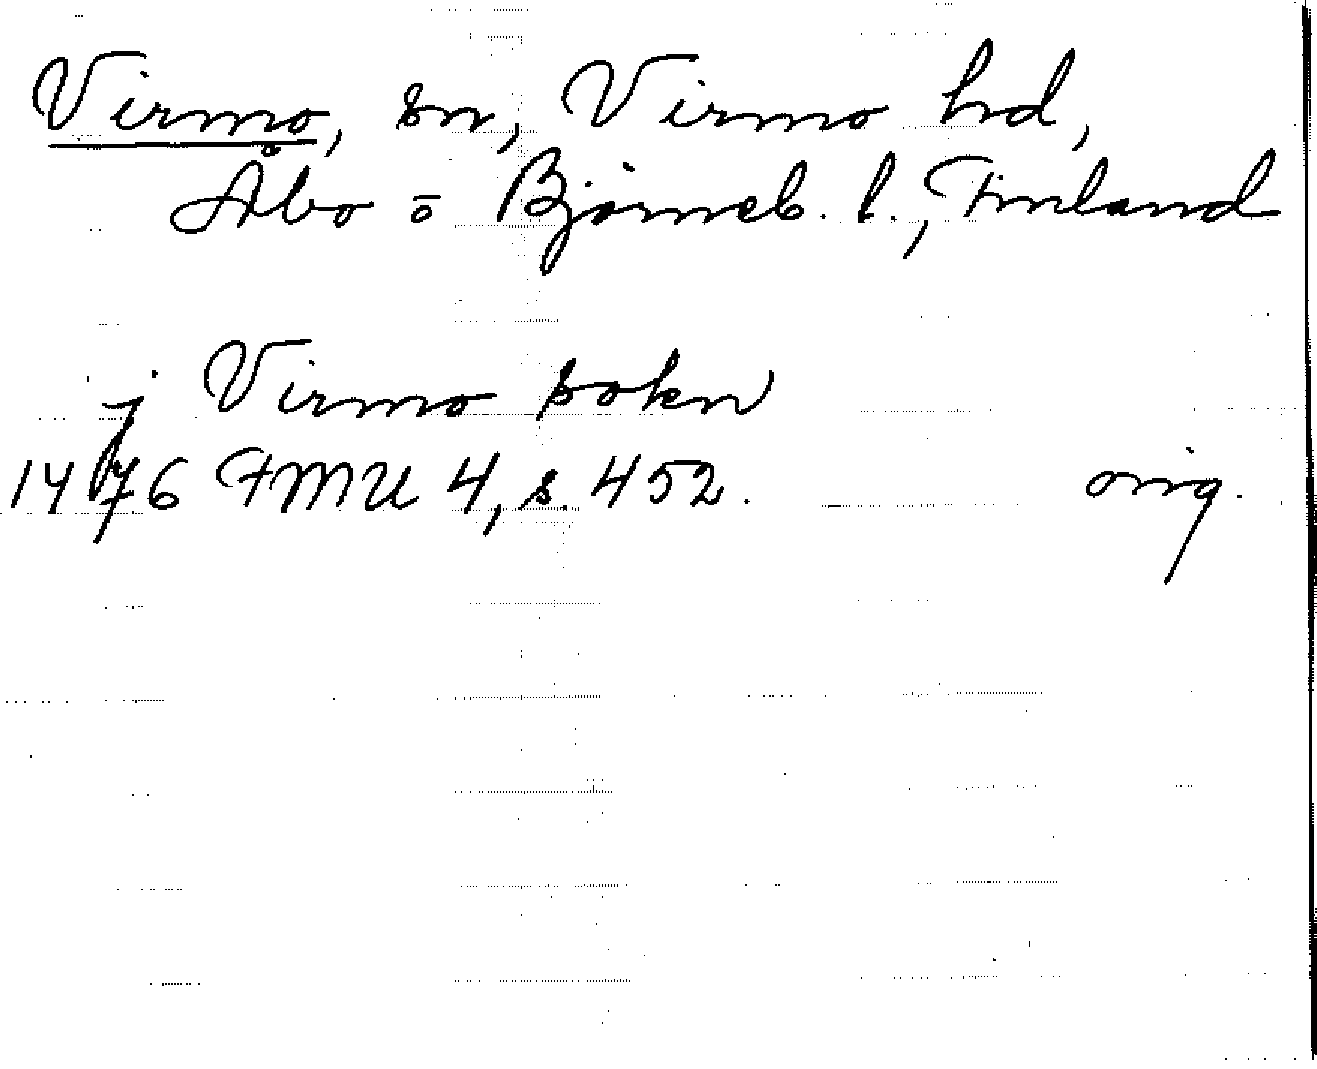 Virmo, sn, Virmo hd,
Åbo o Björneb. l., Finland
j Virmo sokn
1476 FMU 4, s. 452. orig.